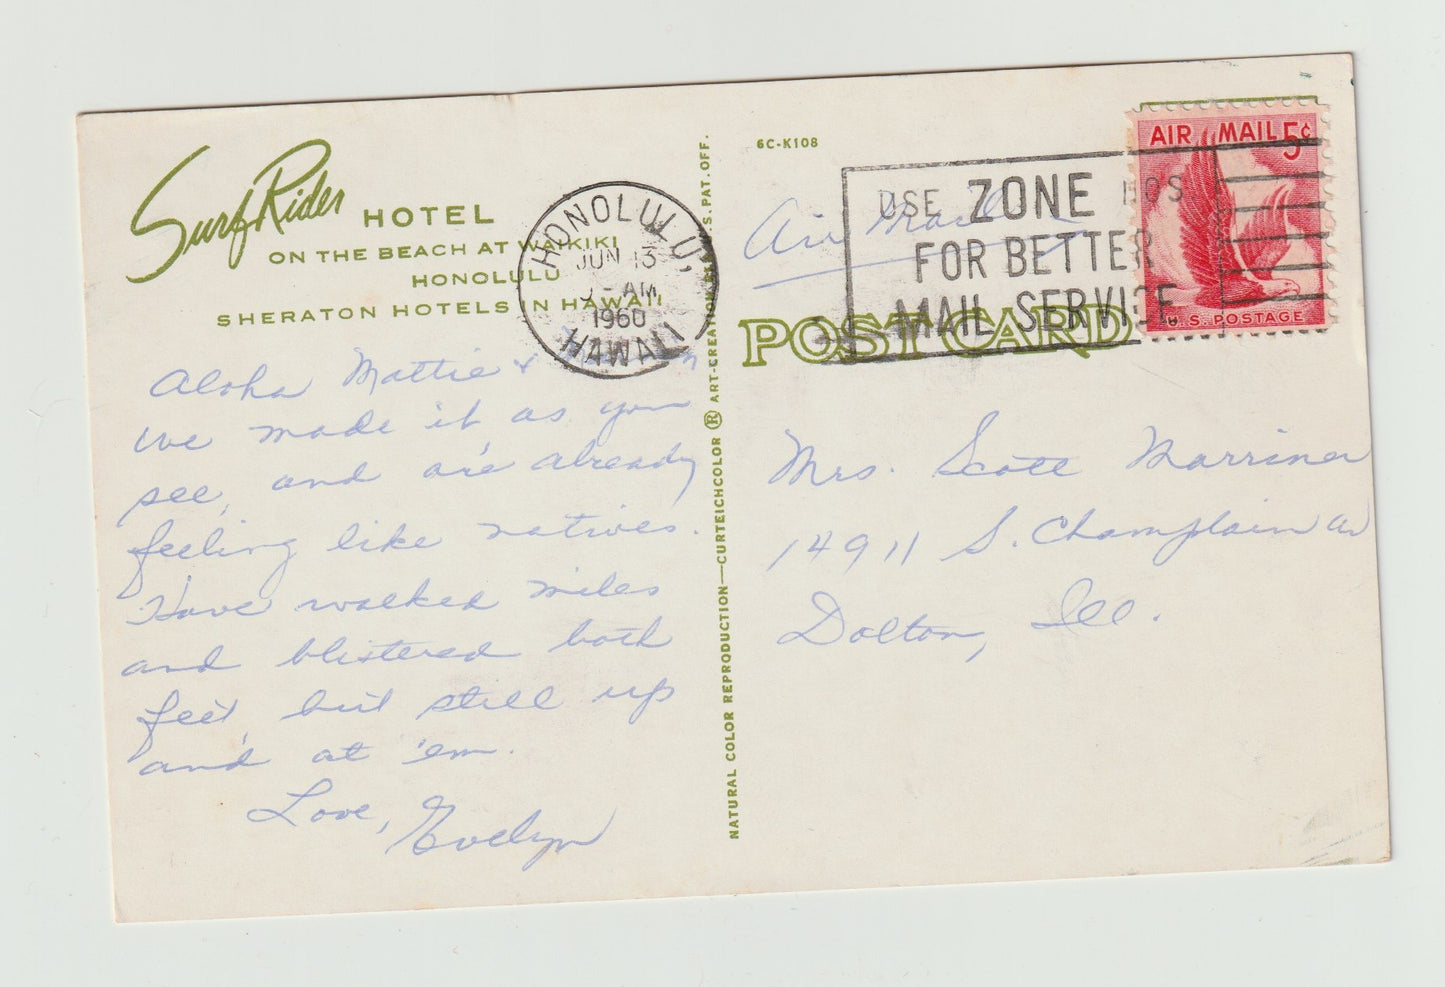 SurfRider HOTEL
ON THE BEACH AT WAIKIKI
HONOLULU
SHERATON HOTELS IN HAWAII
Aloha Mattie &
We made it as you
see, and are already
feeling like natives.
Have walked miles
and blistered both
feet, but still up
and at 'em.
Love, Evelyn
HONOLULU,
JUN 13
AM
1960
HAWAII
NATURAL COLOR REPRODUCTION—CURTEICHCOLOR ® ART-CREATION S. PAT. OFF.
6C-K108
Air Mail
USE ZONE NOS
FOR BETTER
MAIL SERVICE
AIR MAIL 5¢
U.S. POSTAGE
POST CARD
Mrs. Scott Marriner
14911 S. Champlain Av
Dolton, Ill.